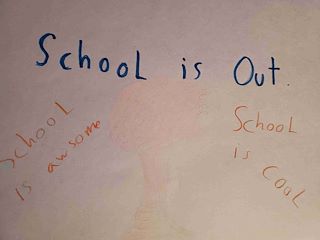 School is Out.
School
is awsome
School
is cool